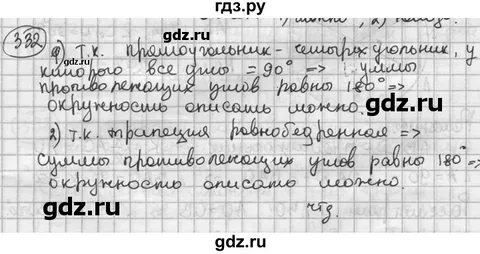 гдз.ру
1) можно, 2)
332 1) т.к. прямоугольник - четырёхугольник, у
которого все углы = 90° => суммы
противолежащих углов равны 180° =>
окружность описать можно.
2) т.к. трапеция равнобедренная =>
Суммы противолежащих углов равны 180° =>
окружность описать можно.
чтд.
гдз.ру гдз.ру
гдз.ру гдз.ру